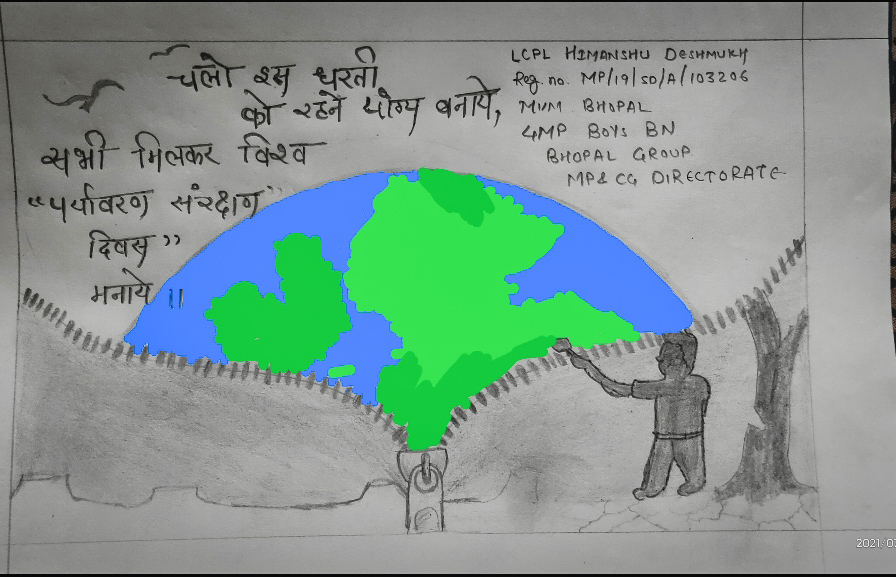 चलो इस धरती
को रहने योग्य बनाये,
सभी मिलकर विश्व
"पर्यावरण संरक्षण"
दिवस"
मनाये ||
LCPL HIMANSHU DESHMUKH
Reg. no. MP/19/SD/A/103206
MVM BHOPAL
4MP BOYS BN
BHOPAL GROUP
MP& CG DIRECTORATE